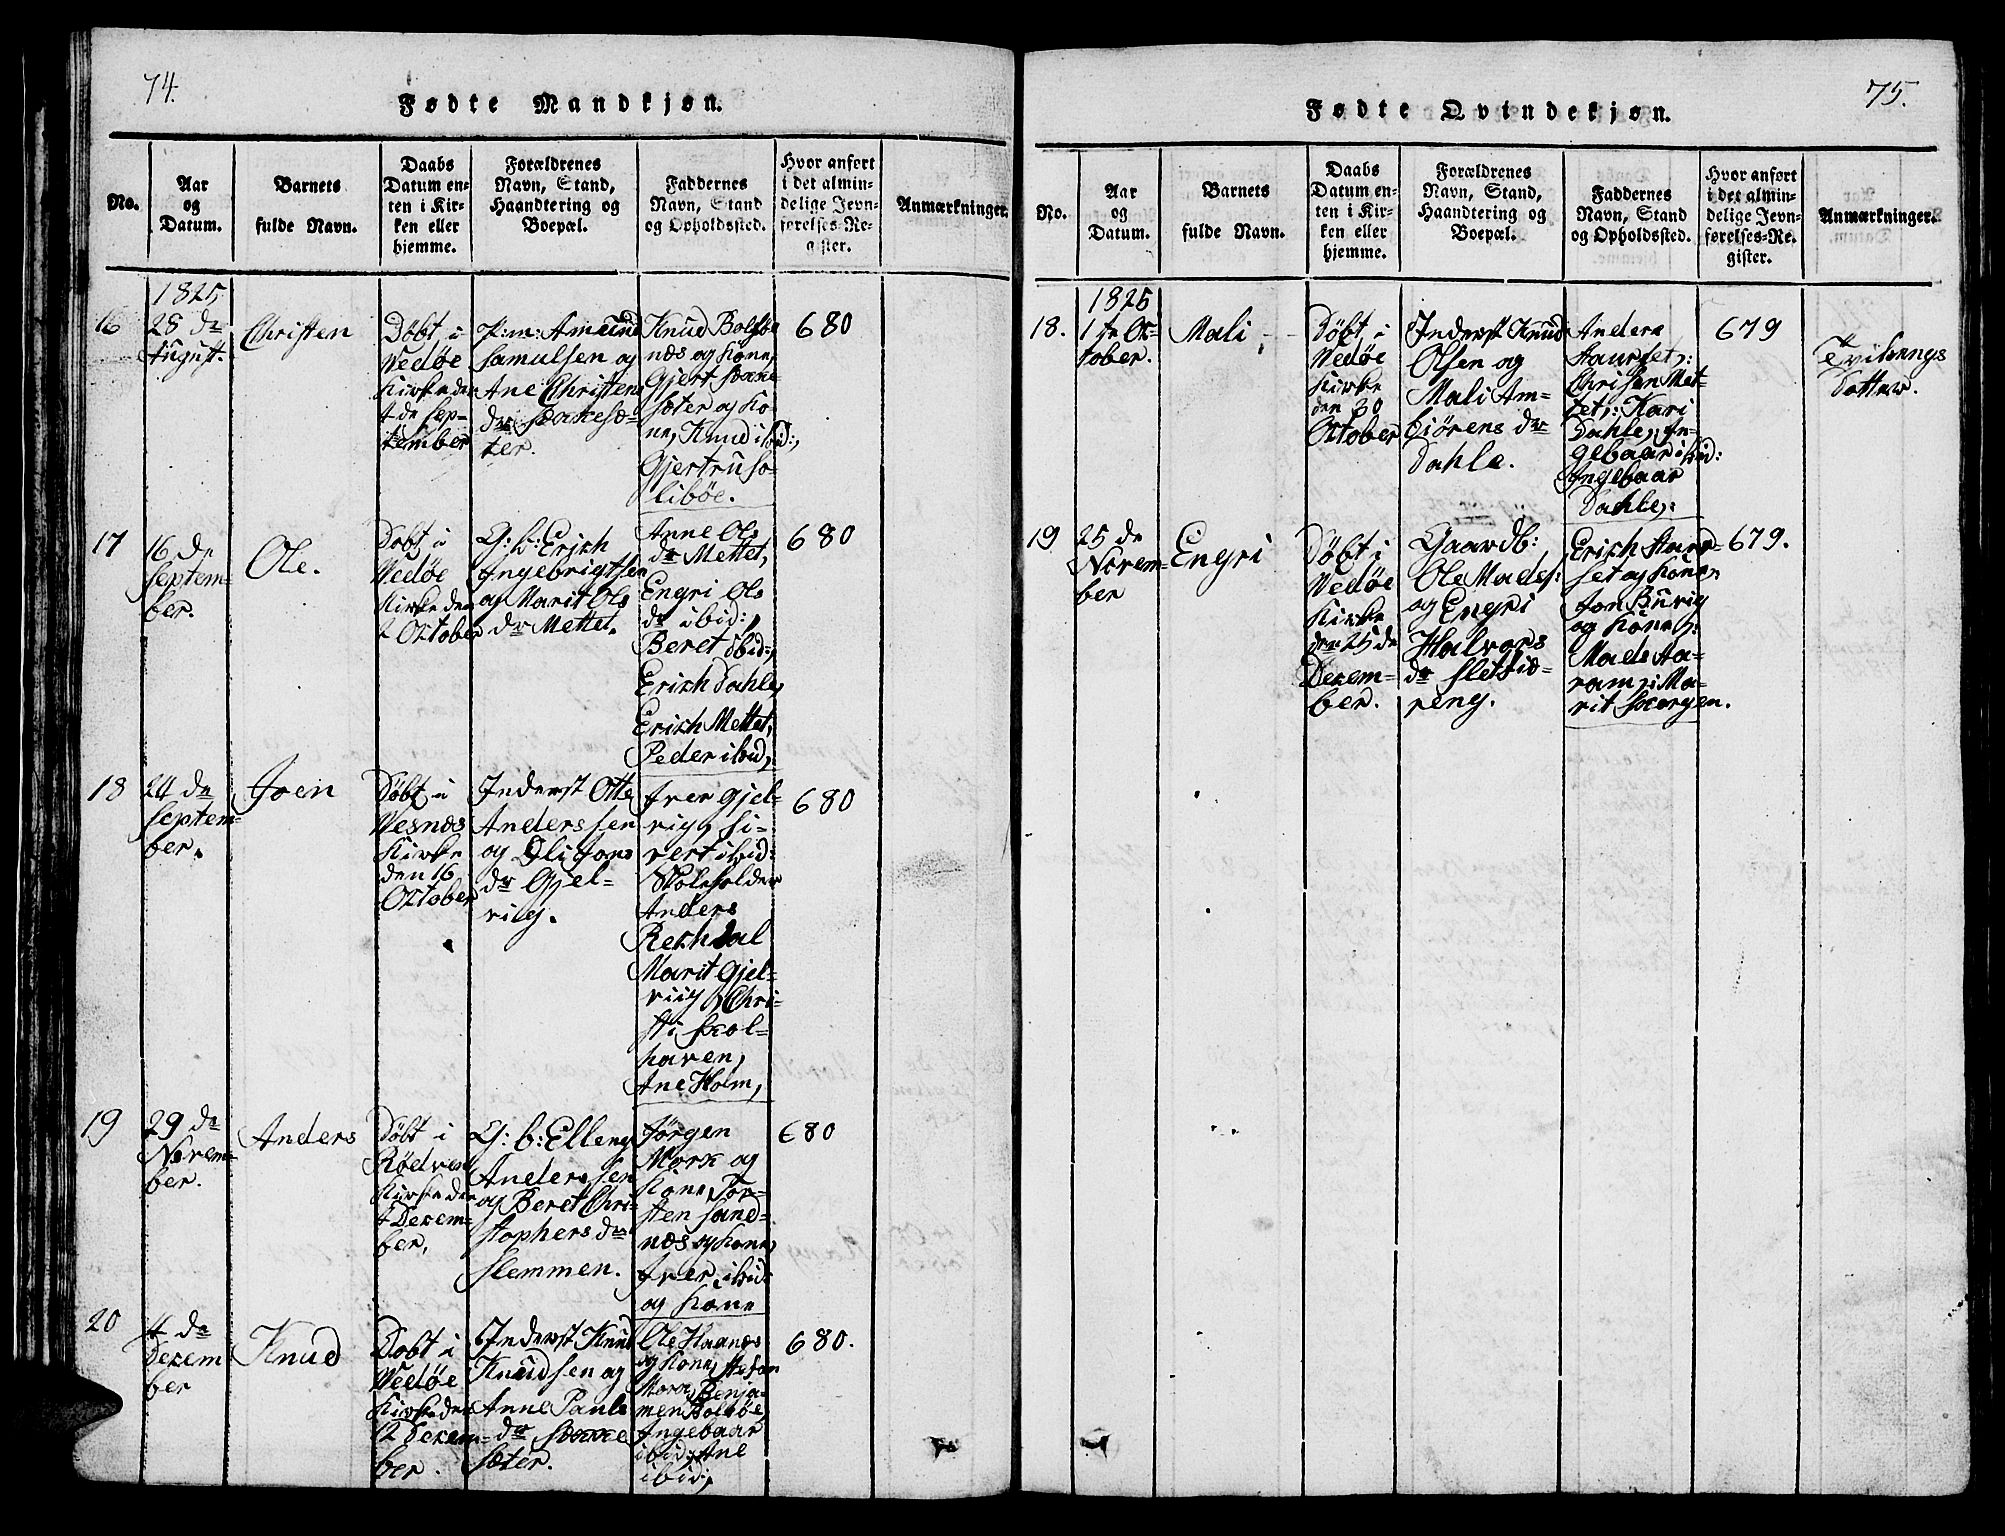 74.
Fødte Mandkjøn.
No.
Aar
og
Datum.
Barnets
fulde Navn.
Daabs
Datum en-
ten i Kir-
ken eller
hjemme.
Forældrenes
Navn, Stand,
Haandtering og
Boepæl.
Faddernes
Navn, Stand
og Opholdssted.
Hvor anført
i det almin-
delige Jevn-
førelses-Re-
gister.
Anmærkninger.
1825
16
28 de
August.
Christen
Døbt i
Vedøe
Kirke den
4 de Sep-
tember
P:m: Amund
Samulsen og
Ane Christens
dr
ter.
Knud Bolsøe
næs og Kone,
Gjert
sæter og Ko-
ne, Knud ibid:,
Gjertru So-
libøe.
680
17
16 de
Septem-
ber.
Ole.
Døbt i
Vedøe
Kirke den
2 October
G: b: Erich
Ingebrigtsen
og Marit Ols
dr Mettet.
Anne Ols
dr Mettet,
Engri Ols
dr ibid:,
Beret ibid:,
Erich Dahle,
Erich Mettet,
Peder ibid,
680
18
24 de
Septem-
ber.
Joen
Døbt i
Vesnæs
Kirke
den 16
October
Inderst Otte
Anderssen
og Oli Jons
dr Gjel-
vig.
Iver Gjel-
vig, Si-
vert ibid:
Skoleholder
Anders
Rechdal
Marit Gjel-
viig, Chri-
sti Skol-
haven,
Ane Holm,
680
19
29 de
Novem-
ber.
Anders
Døbt i
Rødven
Kirke den
4 Decem-
ber,
G: b: Elleng
Anderssen
og Beret Chri-
stophers dr
Slemmen.
Jørgen
Mork og
Kone, Tor-
sten Sand-
næs og Kone,
Iver ibid:
og Kone
680
20
4 de
Decem
ber
Knud
Døbt i
Vedøe
Kirke den
12 Decem-
ber.
Inderst Knud
Knudsen og
Anne Pauls
dr
Sæter.
Ole Haanæs
og Kone, Stefan
Benja-
men Bolsøe,
Ingebaar
ibid:, Ane
ibid:,
680.
75.
Fødte Qvindekjøn.
No.
Aar
og
Datum.
Barnets
fulde Navn.
Daabs
Datum en-
ten i Kir-
ken eller
hjemme.
Forældrenes
Navn, Stand,
Haandtering og
Boepæl.
Faddernes
Navn, Stand
og Opholdssted.
Hvor anført
i det almin-
delige Jevn-
førelses-Re-
gister.
Anmærkninger.
1825
18.
1 ste Oc-
tober.
Mali
Døbt i
Vedøe
Kirke
den 30
October
Inderst Knud
Olsen og
Mali Am-
biørens dr
Dahle.
Anders
Staurset,:
Christen Met-
tet,: Kari
Dahle, In-
gebaar ibid:
Ingebaar
Dahle,:
679
Tvillings
Datter.
19
25 de
Novem-
ber
Engri
Døbt i
Vedøe
Kirke
den 25 de
Decem-
ber.
Gaardb:
Ole Mads:
og Engri
Halvors
dr Sletjæ-
reng.
Erich Staur-
set og Kone,:
Jon Buvig
og Kone,:
Mads Aa-
ram,: Ma-
rit Skorgen.
679.